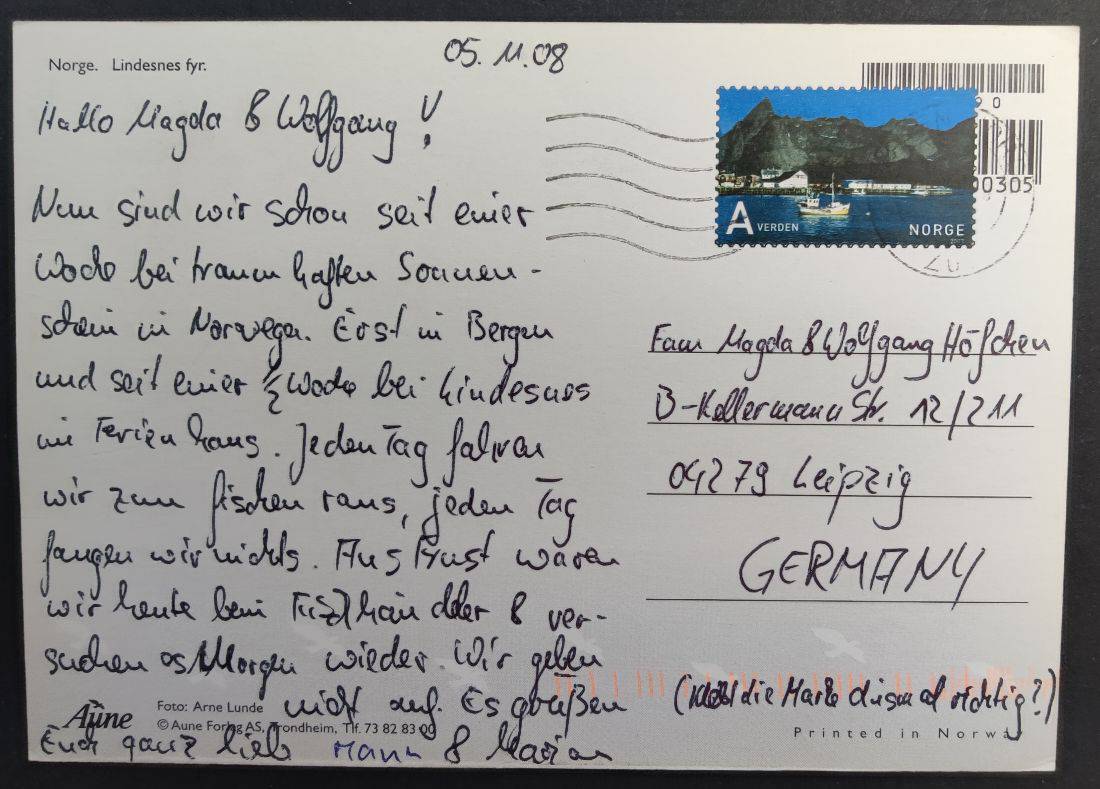 Norge. Lindesnes fyr.
05.11.08
Hallo Magda & Wolfgang!
Nun sind wir schon seit einer
Woche bei traumhaften Sonnen-
schein in Norwegen. Erst in Bergen
und seit einer ½ Woche bei Lindesnes
im Ferienhaus. Jeden Tag fahren
wir zum fischen raus, jeden Tag
fangen wir nichts. Aus Frust waren
wir heute beim Fischhändler & ver-
suchen es Morgen wieder. Wir geben
nicht auf. Es grüßen
Euch ganz lieb & Marian
A VERDEN
NORGE
2007
00305
Fam Magda & Wolfgang Höfchen
B-Kellermann Str. 12/211
04279 Leipzig
GERMANY
(klebt die Marke diesmal richtig?)
Aune
Foto: Arne Lunde
© Aune Forlag AS, Trondheim, Tlf. 73 82 83 00
Printed in Norway